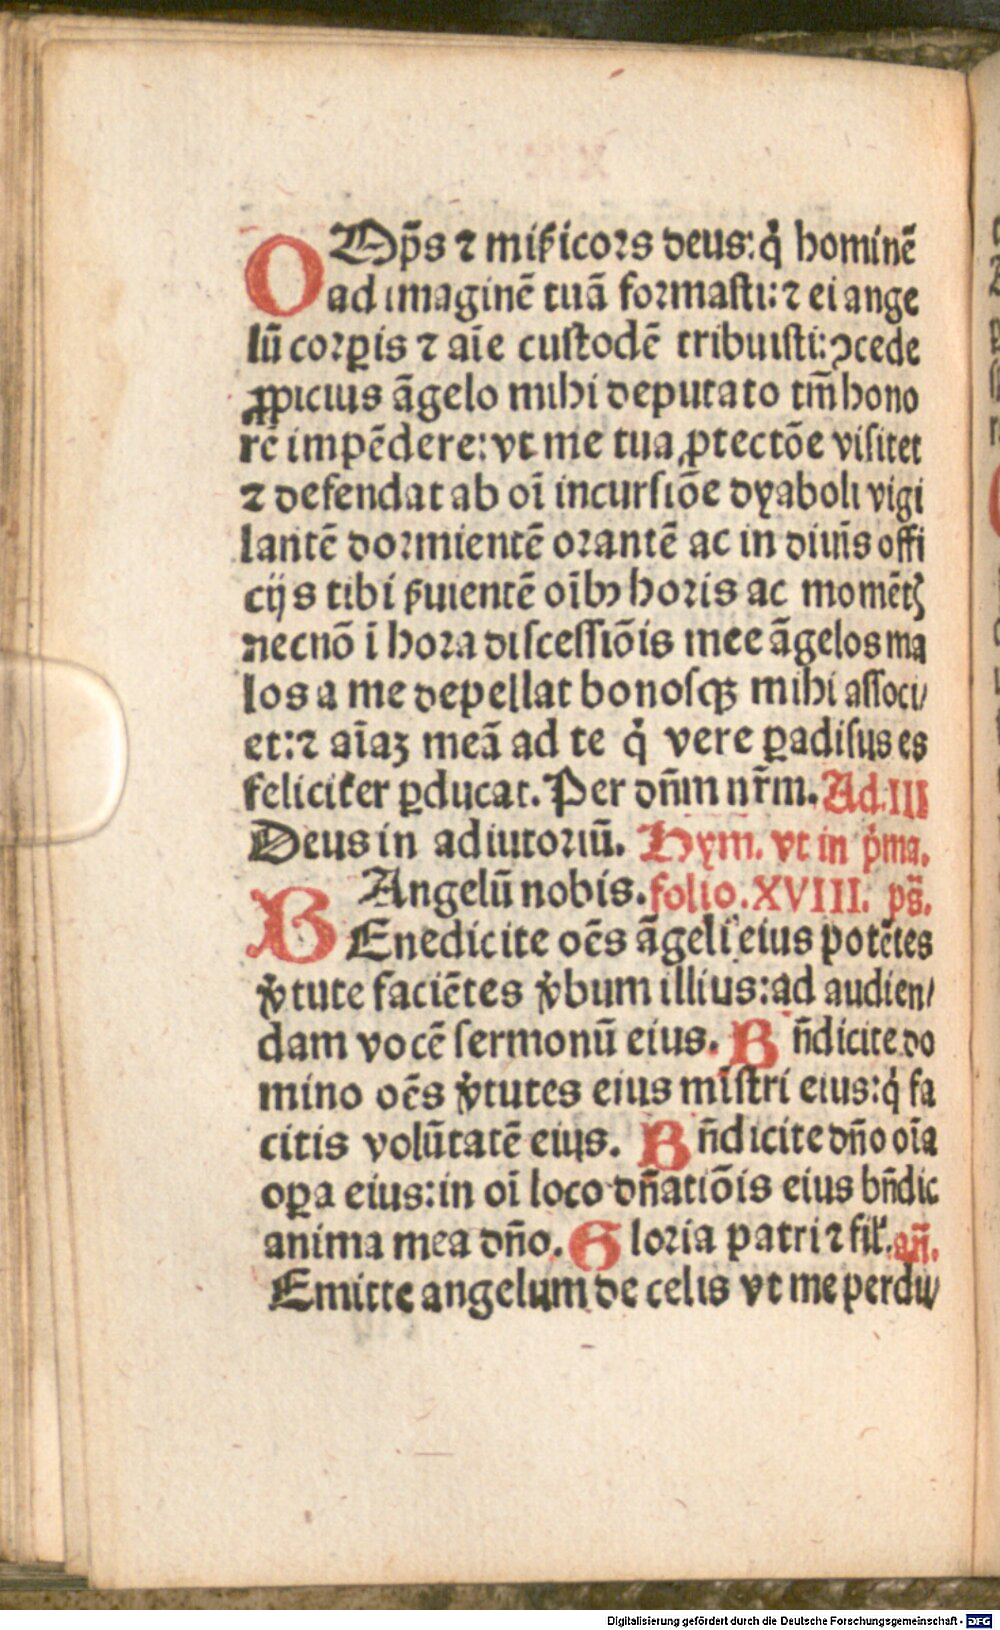 OMp̃s ⁊ mĩſcors deus: q̇ hominē
ad imaginē tuā formaſti: ⁊ ei ange
lū corꝑis ⁊ aīe cuſtodē tribuiſti: ꝯcede
ꝓpicius āgelo mihi deputato tm̄ hono
rē impēdere: vt me tua ꝓtectōe viſitet
⁊ defendat ab oī incurſiōe dyaboli vigi
lantē dormientē orantē ac in diuīs offi
cijs tibi ẜuientē oībꝰ horis ac momētꝭ
necnō ī hora diſceſſiōis mee āgelos ma
los a me depellat bonoſqꝫ mihi aſſoci/
et: ⁊ aīaꝫ meā ad te q̇ vere ꝑadiſus es
feliciter ꝑducat. Per dn̄m nr̄m. Ad. III
Deus in adiutoriū. Hym. vt in p̓ma.
Angelū nobis. folio. XVIII. ps̄.
BEnedicite oēs āgeli eius potētes
v̓tute faciētes v̓bum illius: ad audien/
dam vocē ſermonū eius. Bn̄dicite do
mino oēs v̓tutes eius mīſtri eius: q̇ fa
citis volūtatē eius. Bn̄dicite dn̄o oīa
oꝑa eius: in oī loco dn̄atiōis eius bn̄dic
anima mea dn̄o. Gloria patri ⁊ fil̓. an̄.
Emitte angelum de celis vt me perdu/
Digitalisierung gefördert durch die Deutsche Forschungsgemeinschaft - DFG